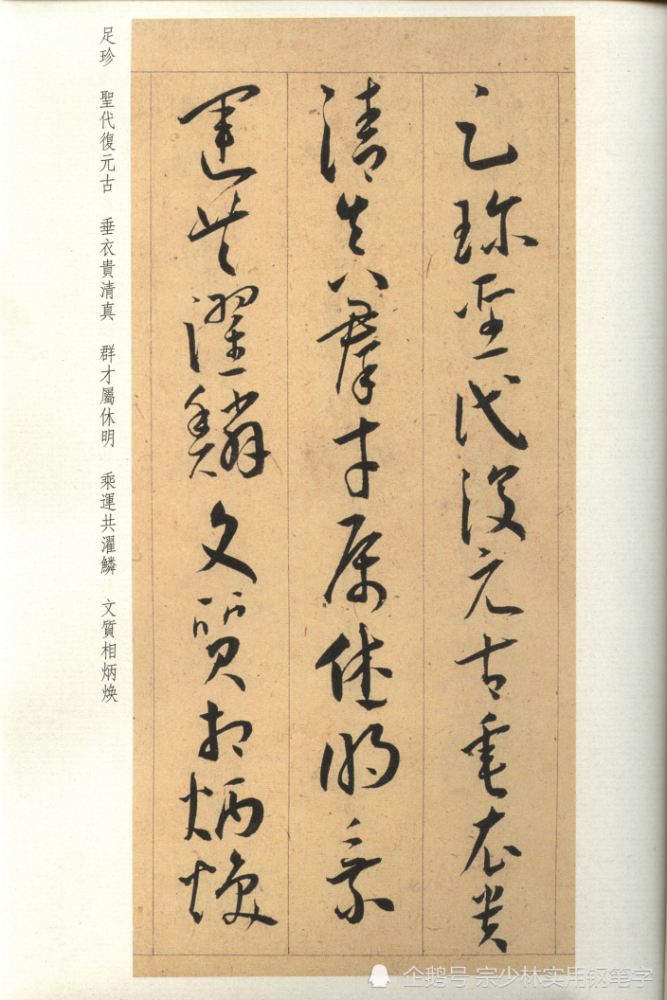 足珍聖代復元古垂衣貴
清真群才屬休明乘
運共濯鱗文質相炳煥
足珍 聖代復元古 垂衣貴清真 群才屬休明 乘運共濯鱗 文質相炳煥
企鹅号 宗少林实用钢笔字